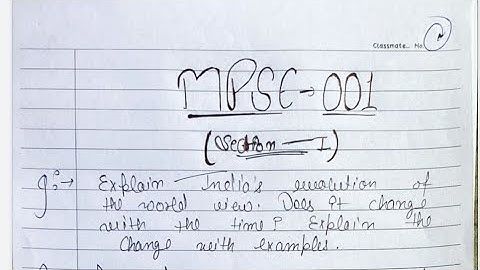 Classmate No.
MPSE → 001
(Section - I)
Explain India's evolution of
the world view. Does it change
with the time? Explain the
change with examples.